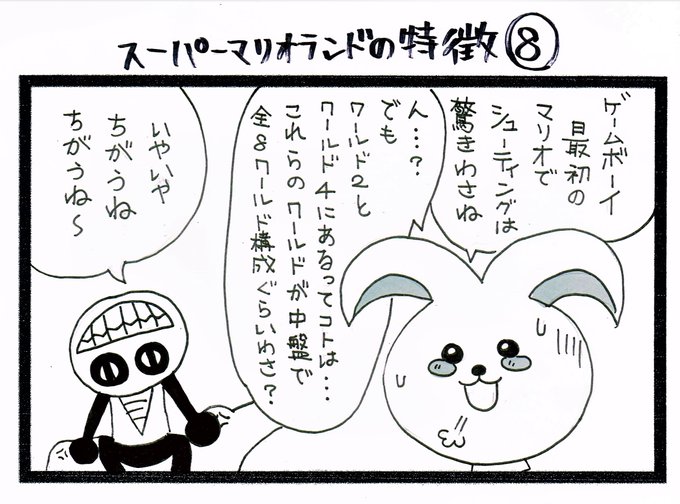 スーパーマリオランドの特徴⑧
ゲームボーイ
最初の
マリオで
シューティングは
驚きわさね
ん…?
でも
ワールド2と
ワールド4にあるってコトは…
これらのワールドが中盤で
全8ワールド構成ぐらいわさ?
いやいや
ちがうね
ちがうね～